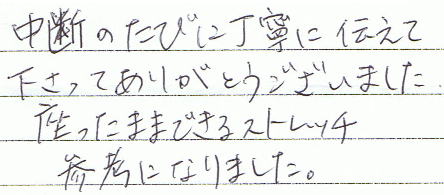 中断のたびに丁寧に伝えて
下さってありがとうございました.
座ったままできるストレッチ
参考になりました。